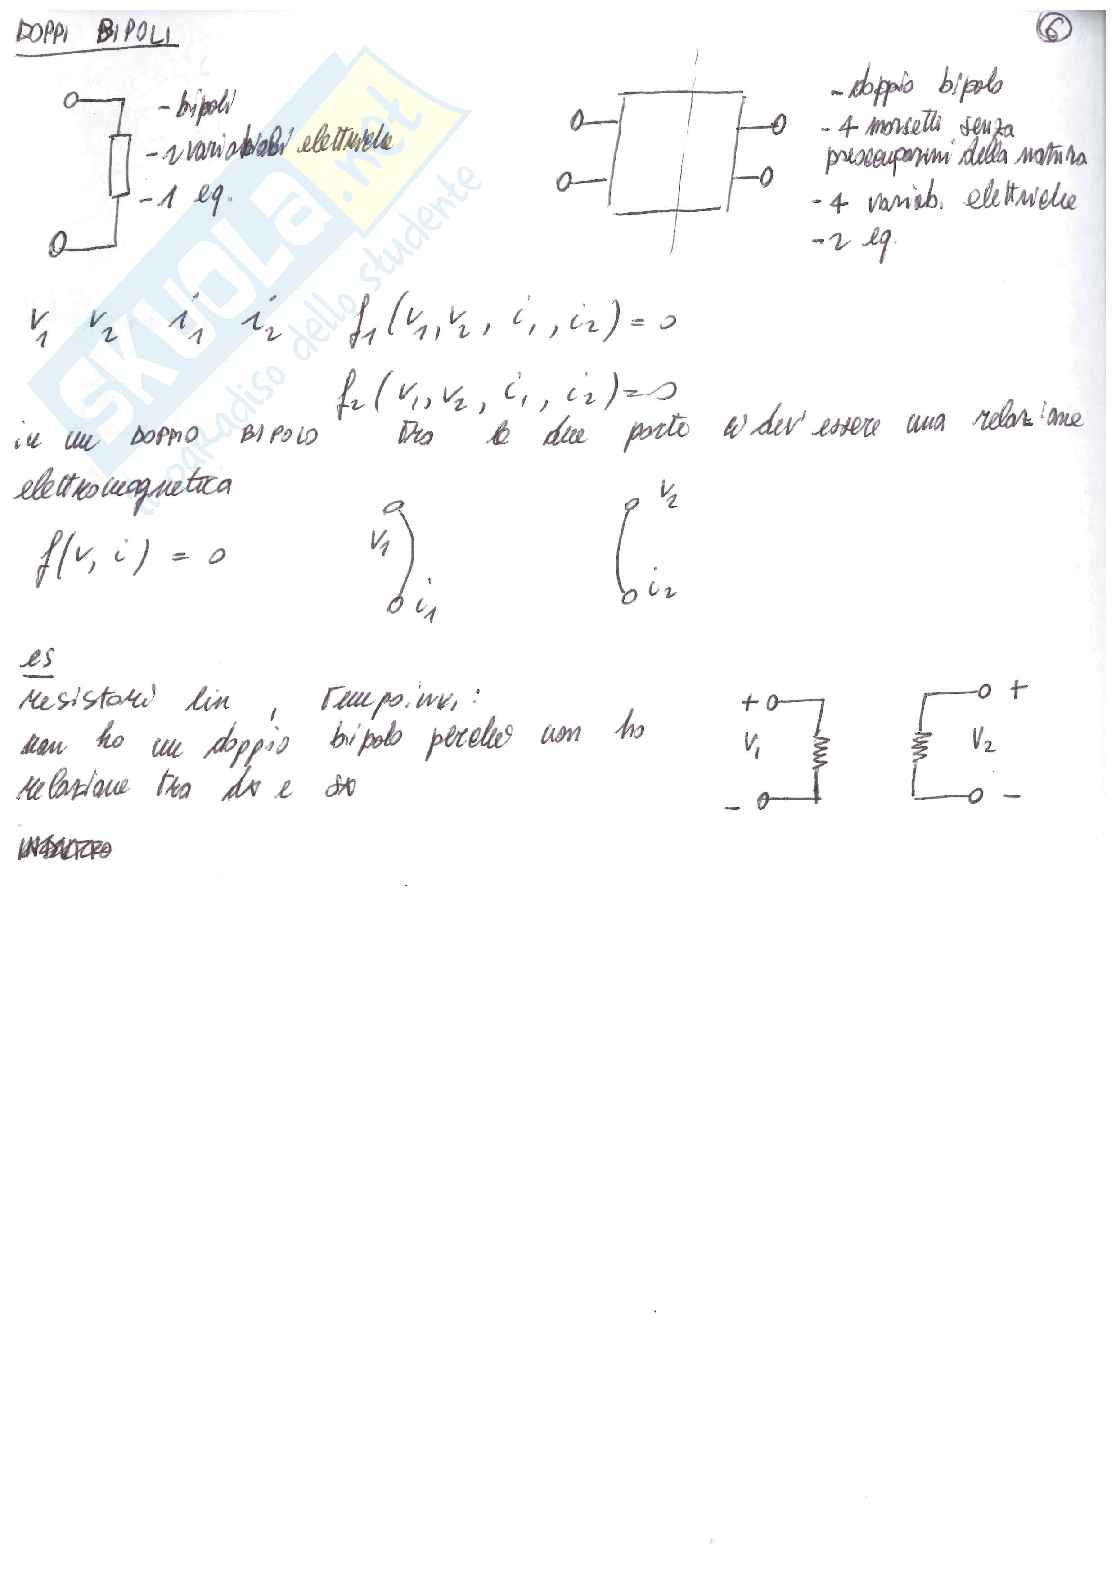 DOPPI BIPOLI
6
- bipoli
- 2 variabili elettriche
- 1 eq.
- doppio bipolo
- 4 morsetti senza
preoccuparmi della natura
- 4 variab. elettriche
- 2 eq.
v1 v2 i1 i2 f1(v1, v2, i1, i2) = 0
f2(v1, v2, i1, i2) = 0
in un DOPPIO BIPOLO tra le due porte ci dev'essere una relazione
elettromagnetica
f(v, i) = 0
v1
i1
v2
i2
es
resistori lin, tempo.inv.:
non ho un doppio bipolo perché non ho
relazione tra dx e sx
+
v1
-
+
v2
-
SKUOLA.net
il paradiso dello studente